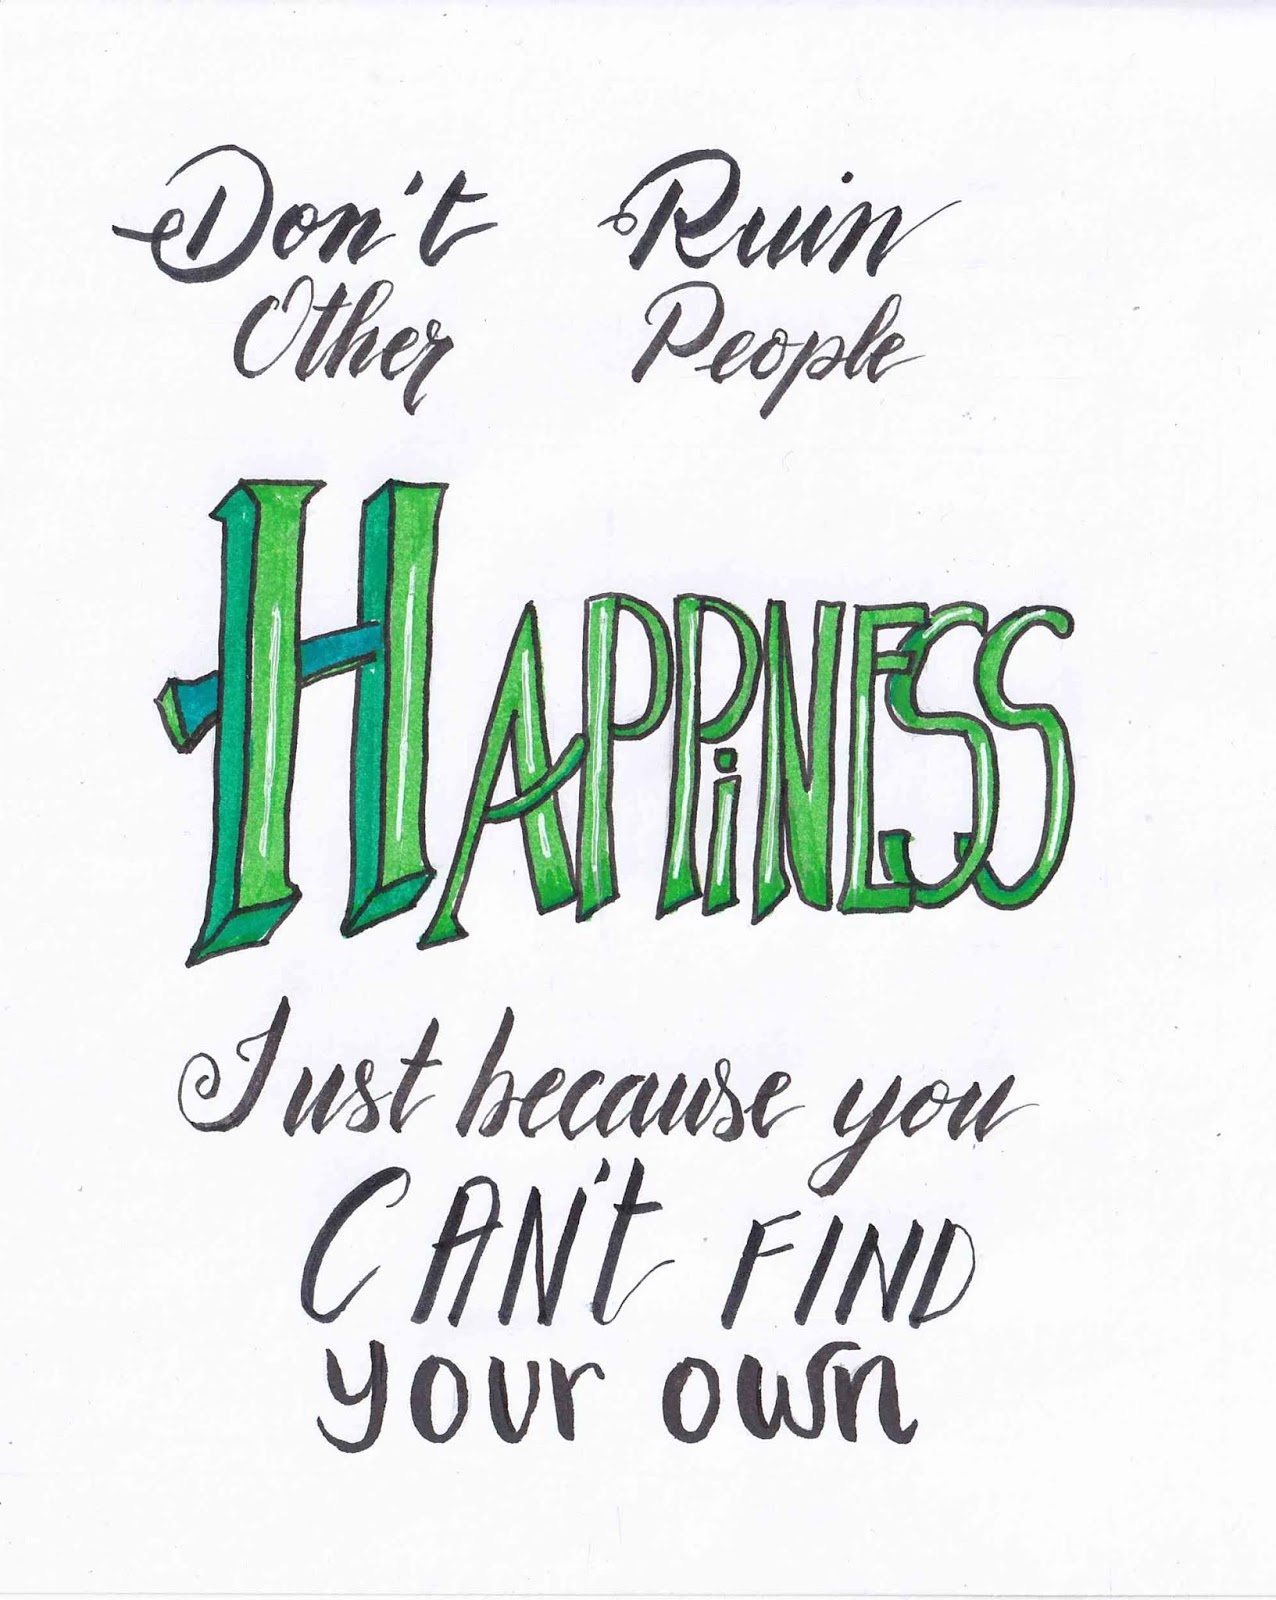 Don't Ruin
Other People
HAPPiNESS
Just because you
CAN't FIND
your own